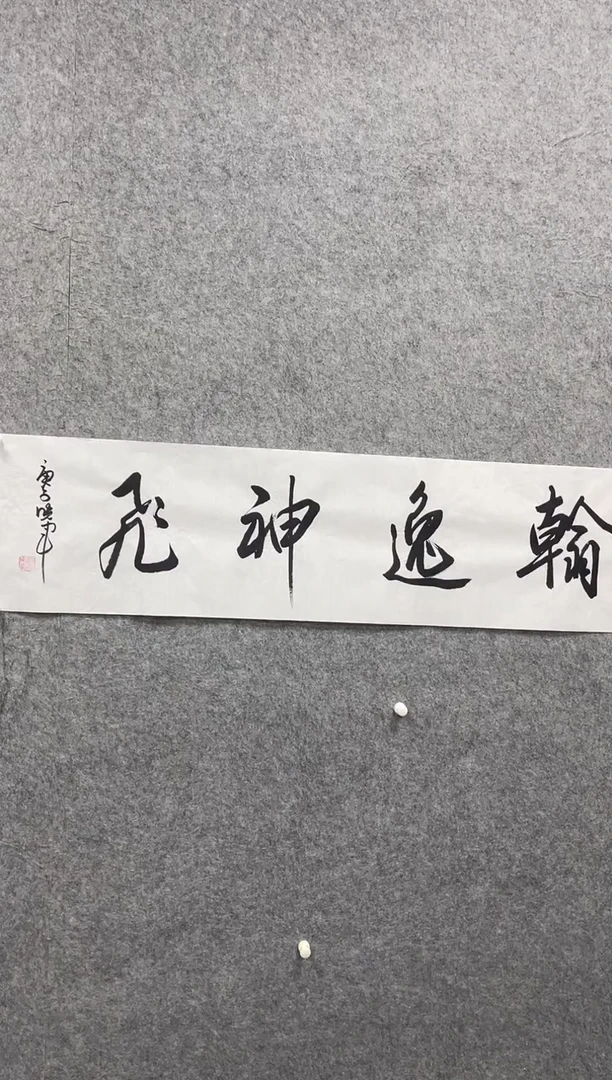 翰逸神飞
庚子晓军